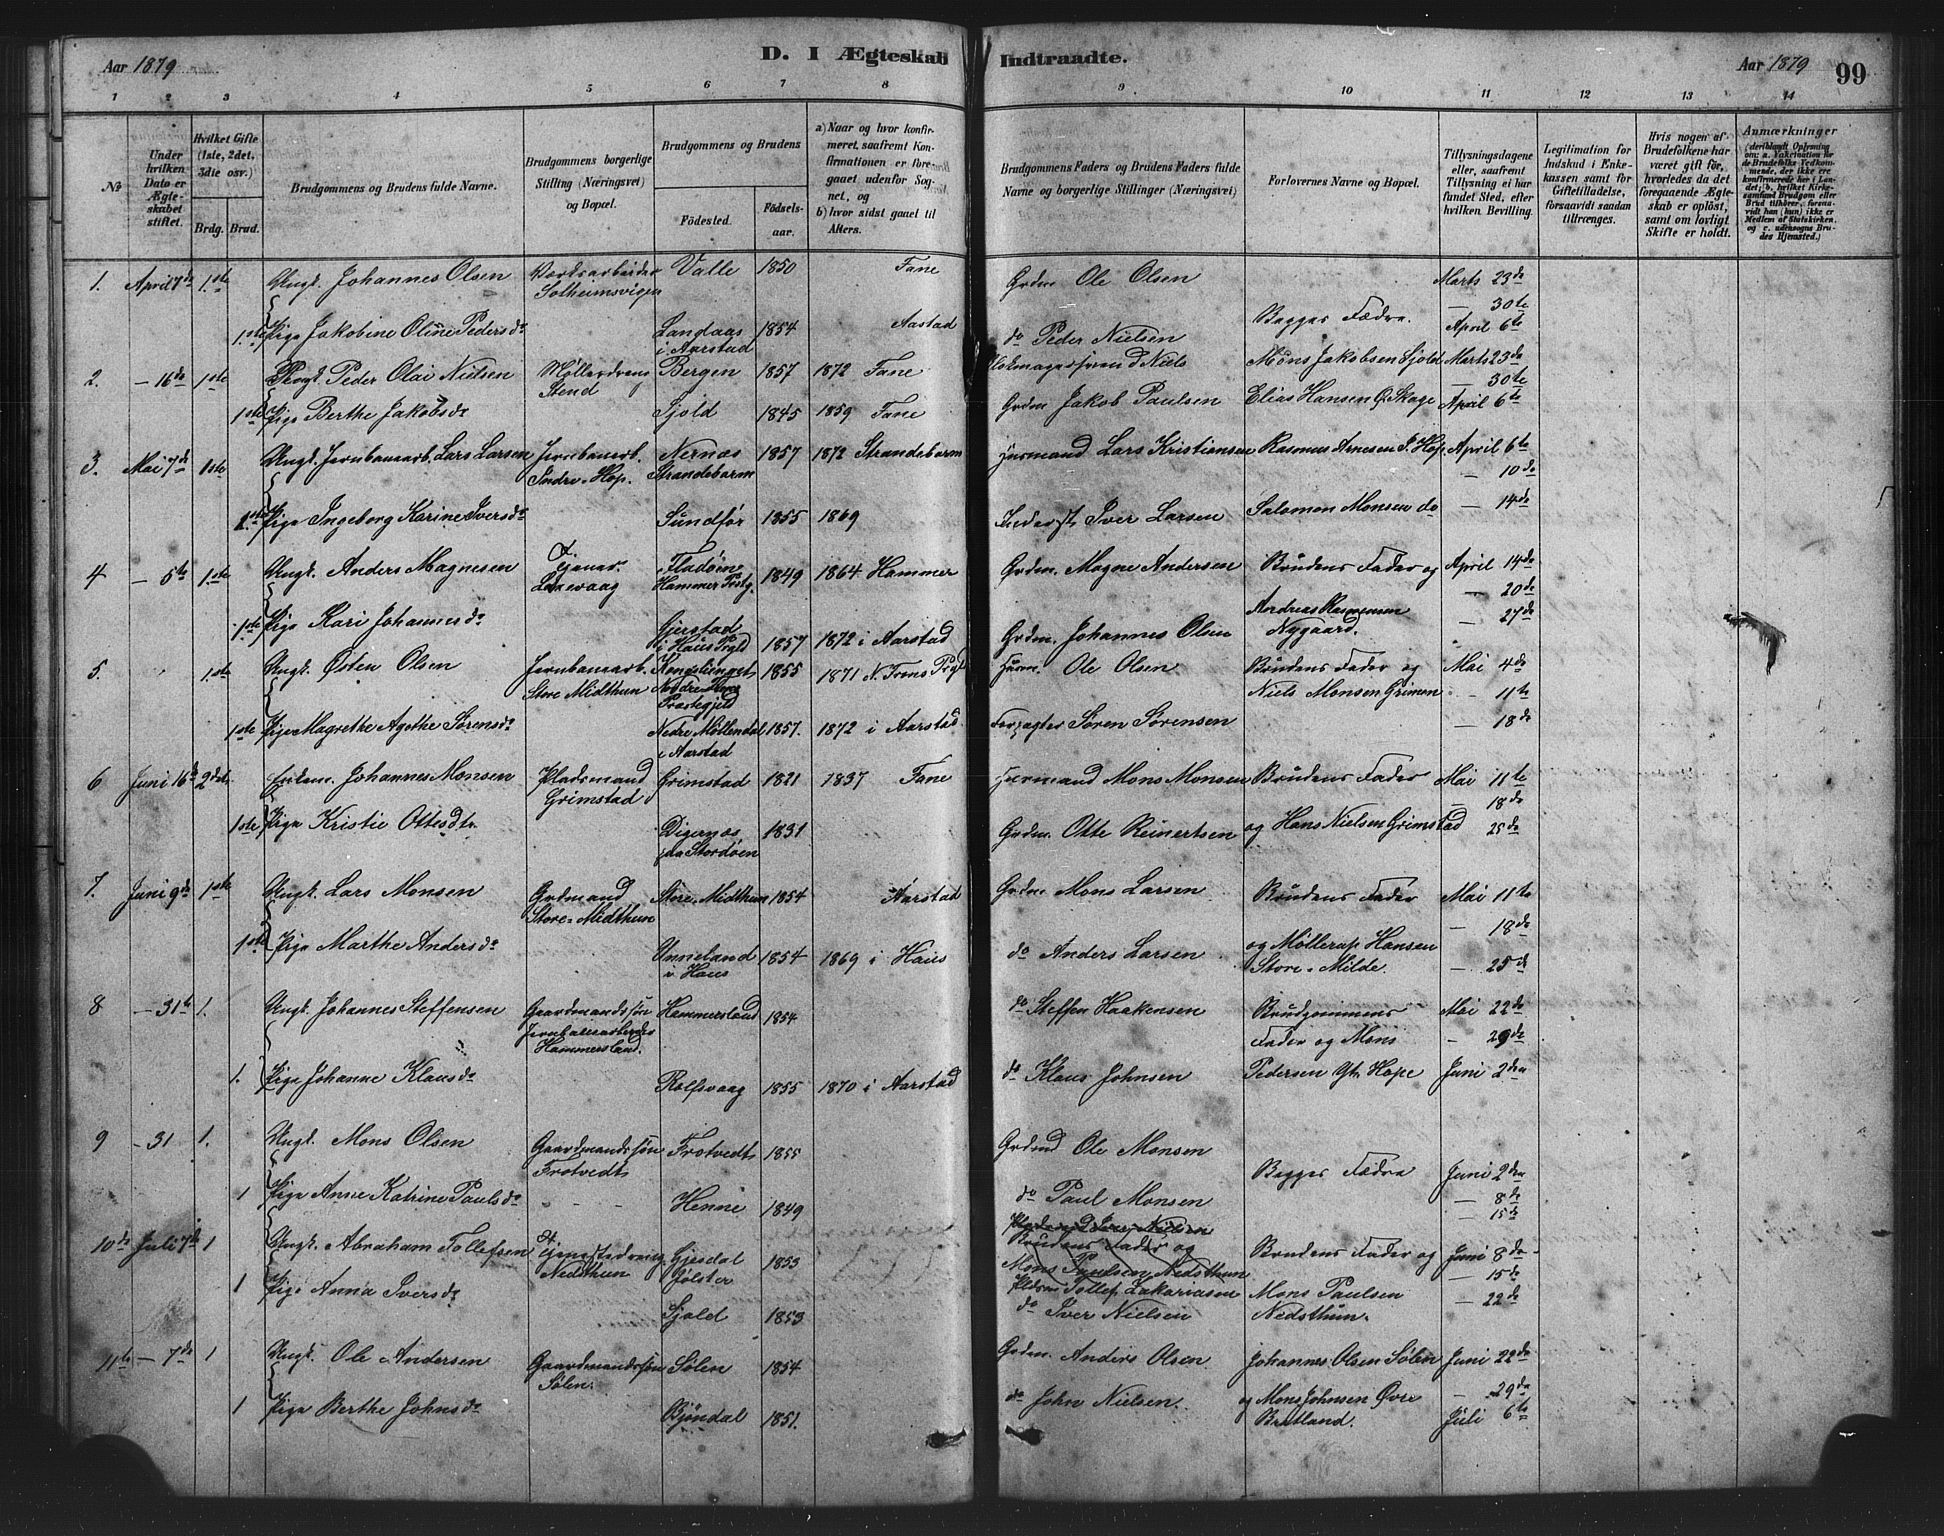 Aar 1879
D. I Ægteskab
Indtraadte.
Aar 1879
99
1 2 3 4 5 6 7 8
9 10 11 12 13 14
No
Under hvilken Dato er Ægteskabet stiftet.
Hvilket Gifte (1ste, 2det, 3die osv.)
Brdg. Brud.
Brudgommens og Brudens fulde Navne.
Brudgommens borgerlige Stilling (Næringsvei) og Bopæl.
Brudgommens og Brudens
Födested.
Födsels-aar.
a) Naar og hvor konfirmeret, saafremt Konfirmationen er foregaaet udenfor Sognet, og
b) hvor sidst gaaet til Alters.
Brudgommens Faders og Brudens Faders fulde Navne og borgerlige Stillinger (Næringsvei)
Forlovernes Navne og Bopæl.
Tillysningsdagene eller, saafremt Tillysning ei har fundet Sted, efter hvilken Bevilling.
Legitimation for Indskud i Enkekassen samt for Giftetilladelse, forsaavidt saadan tiltrænges.
Hvis nogen af Brudefolkene har været gift för, hvorledes da det foregaaende Ægteskab er oplöst, samt om lovligt Skifte er holdt.
Anmærkninger
(deriblandt Oplysning om: a. Vakcination for de Brudefolks Vedkommende, der ikke ere konfirmerede her i Landet; b. hvilket Kirkesamfund Brudgom eller Brud tilhörer, forsaavidt han (hun) ikke er Medlem af Statskirken, og c. udensogns Brudes Hjemsted.)
1. April 7de 1.ste Ungk. Johannes Olsen Værdsarbeider Solheimsvigen Valle 1850 Fane Grdm Ole Olsen Marts 23de
— 30te
Begges Fædre.
1.ste Pige Jakobine Oline Pedersdr Langlaas i Aarstad 1854 Aastad do Peder Nielsen April 6te
2. — 16de 1ste Ungk. Peder Olai Nielsen Møllerdreng Stend Bergen 1857 1872 Fane Niels Mons Jakobsen Sjold Marts 23de
— 30te
1ste Pige Berthe Jakobsdr Sjold 1845 1859 Fane Grdm Jakob Paulsen Elias Hansen Ø. Skage April 6te
3. Mai 7de 1ste Ungk. Jernbanearb. Lars Larsen Jernbanearb. Indre-Hop. Nernæs Strandebarm 1857 1872 Strandebarm Husmand Lars Kristiansen Rasmus Arnesen I. Hop April 6te
— 10de
1.ste Pige Ingeborg Karine Iversdr Sundfør 1855 1869 Iver Larsen Salomon Monsen do — 14de
4 — 5te 1.ste Ungk. Anders Magnesen Tjener. Laxevaag Fladøen Hammer Prstg. 1849 1864 Hammer Grdm. Magne Andersen Brudens Fader og April 14de
— 20de
1ste Pige Kari Johannesdr Gjerstad i Haus Prgld 1857 1872 i Aarstad Grdm. Johannes Olsen Andreas Rasmussen Nygaard. — 27de
5. 1.ste Ungk. Østen Olsen Jernbanearb. Store Midthun Præstegjeld 1855 1871 N. Frons Prgld Ole Olsen Brudens Fader og Mai 4de
Niels Monsen Grimen — 11te
1ste Pige Magrethe Agethe Sørensdr Nedre Møllendal i Aarstad 1857. 1872 i Aarstad Forpagter Søren Sørensen — 18de
6 Juni 16de 2det Enkem. Johannes Monsen Pladsmand Grimstad Grimstad 1821 1837 Fane Husmand Mons Monsen Brudens Fader Mai 11te
— 18de
1ste Pige Kristie Ottesdtr. Digernæs paa Stordøen 1831 Grdm. Otte Reinertsen og Hans Nielsen Grimstad 25de
7. Juni 9de 1ste Ungk. Lars Monsen Grdmand Store-Midthun Store-Midthun 1854 Aarstad Grdm. Mons Larsen Brudens Fader Mai 11te
— 18de
1ste Pige Marthe Andersdr Unneland i Haus 1854 1869 i Haus do Anders Larsen og Møllerup Hansen Store-Milde. — 25de
8 — 31te 1. Ungk. Johannes Steffensen Gaardmandssøn Jernbanearbeider Hammersland. Hammersland 1854 do Steffen Haakensen Brudgommens Mai 22de
Fader og Mons — 29de
1. Pige Johanne Klausdr Rolfsvaag 1855 1870 i Aarstad do Klaus Johnsen Pedersen Hope Juni 2den
9 — 31 1. Ungk. Mons Olsen Gaardmandssøn Frotvedt Frotvedt 1855 Grdmd Ole Monsen
Begges Fædre Juni 2den
1 Pige Anne Katrine Paulsdr - - Henne 1849 do Paul Monsen — 8de
— 15de
Brudens Fader og
Mons Paulsen Nedsthun
10de Juli 7de 1 Ungk. Abraham Tollefsen Nedthun Gjesdal Jølster 1853 Pldsm Tollef Zakariasen Brudens Fader og Juni 8de
— 15de
1 Pige Anna Iversdr Sjold 1853 do Iver Nielsen Mons Paulsen Nedsthun. — 22de
11te — 7de 1 Ungk. Ole Andersen Gaardmandssøn Sølen. Sølen 1854 Grdm. Anders Olsen. Johannes Olsen Sølen Juni 22de
— 29de
1 Pige Berthe Johnsdr Bjøndal 1851. do John Nielsen og Mons Johnsen Øvre Bratland. Juli 6te